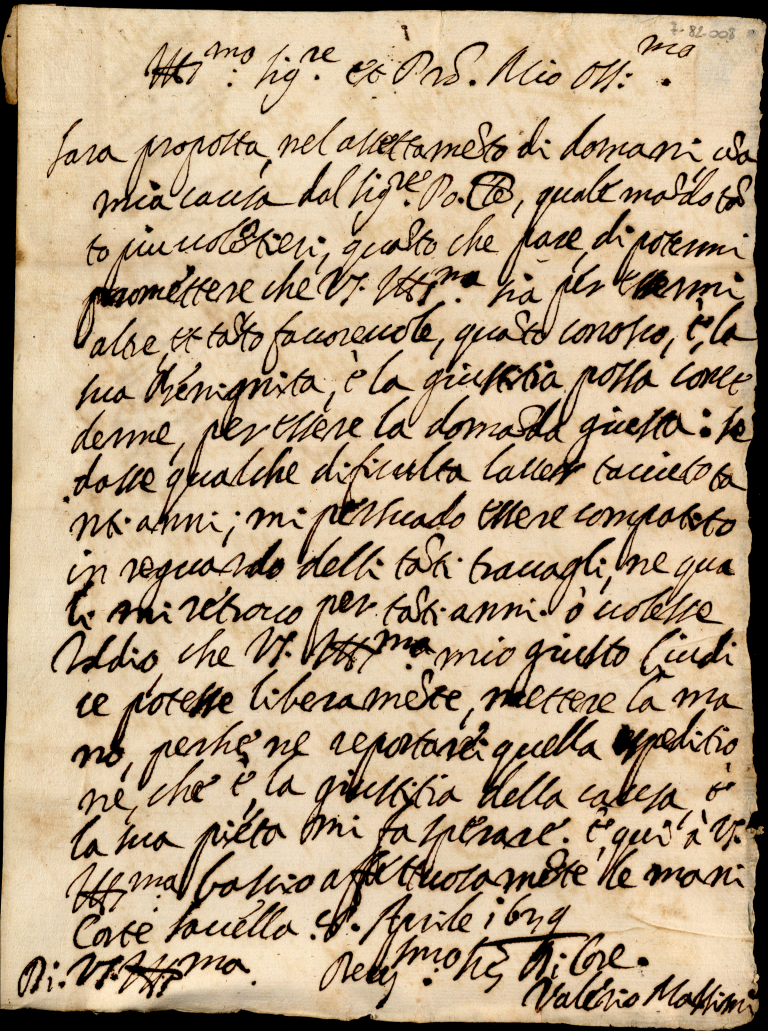 7-82-008
Ill.mo Sig.re et Pro. Mio Oss.mo
Sara proposta, nel assettamẽto di domani, ũa
mia causa dal Sig.re Po. , quale mãdo tã
to piu volẽtieri, quãto che pare, di potermi
promettere che V.S. Ill.ma sia per essermi
altre, et tãto favorevole, quãto conosco, è, la
sua benignita, è la giustitia possa conce
derme, per essere la domãda giusta: se
dasse qualche dificulta laver taciuto ta
nti anni; mi persuado essere compatito
in reguardo delli tãti travagli, ne qua
li mi retrovo per tãti anni. ò volesse
Iddio, che V.S. Ill.ma mio giusto Giudi
ce potesse liberamẽte, mettere la ma
no, perche ne reportarei quella speditio
ne, che è, la giustitia della causa, è
la sua pieta mi fa sperare. è qui à V.S.
Ill.ma bascio affettuosamẽte le mani
Corte Savella. 8. Aprile 1639
Di. V.S. Ill.ma.
Valerio Massimi